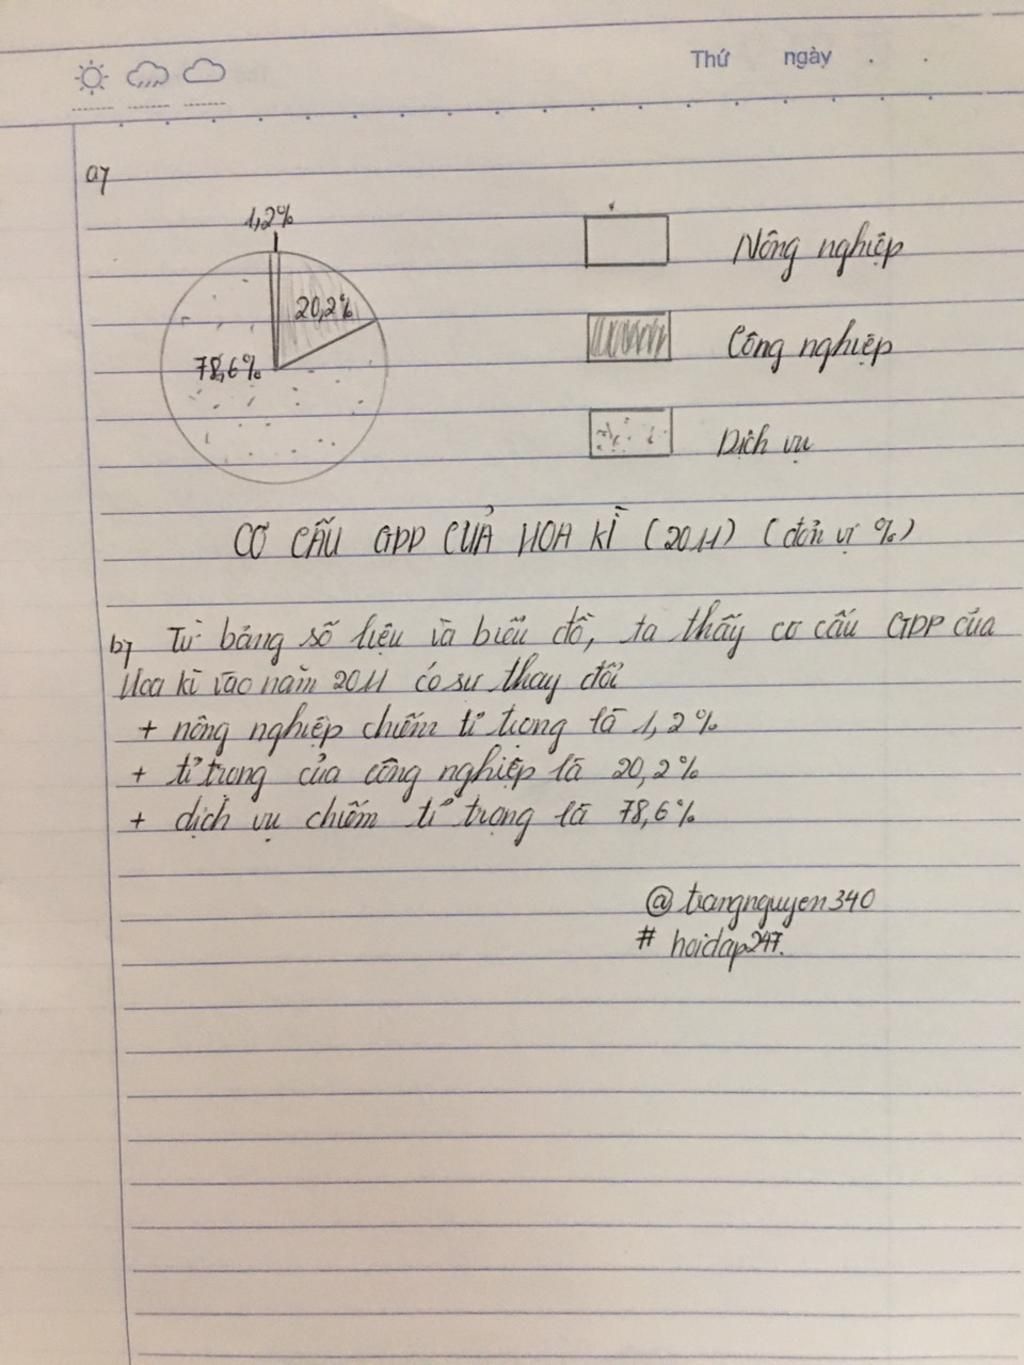 Thứ ngày . .
a)
1,2%
20,2%
78,6%
Nông nghiệp
Công nghiệp
Dịch vụ
CƠ CẤU GDP CỦA HOA KÌ (2011) (đơn vị %)
b) Từ bảng số liệu và biểu đồ, ta thấy cơ cấu GDP của
Hoa kì vào năm 2011 có sự thay đổi
+ nông nghiệp chiếm tỉ trọng là 1,2%
+ tỉ trọng của công nghiệp là 20,2%
+ dịch vụ chiếm tỉ trọng là 78,6%
@trangnguyen340
# hoidap247.